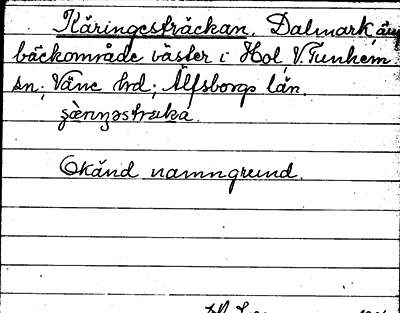 Käringesträckan. Dalmark,
bäckområde väster i Hol, V. Tunhem
sn, Väne hrd; Älfsborgs län.
Okänd namngrund.